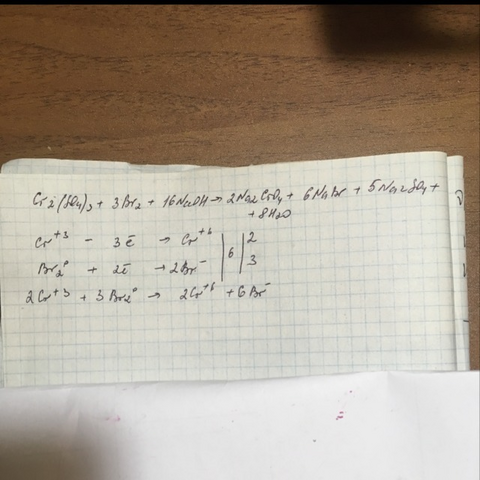 Cr2(SO4)3 + 3Br2 + 16NaOH → 2Na2CrO4 + 6NaBr + 5Na2SO4 +
+ 8H2O
Cr+3 - 3ē → Cr+6 | 6 | 2
Br2⁰ + 2ē → 2Br⁻ | | 3
2Cr+3 + 3Br2⁰ → 2Cr+6 + 6Br⁻